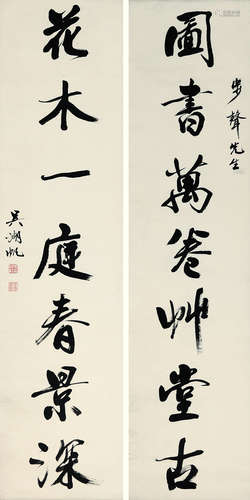 步聲先生
圖書萬卷艸堂古
花木一庭春景深
吳湖帆